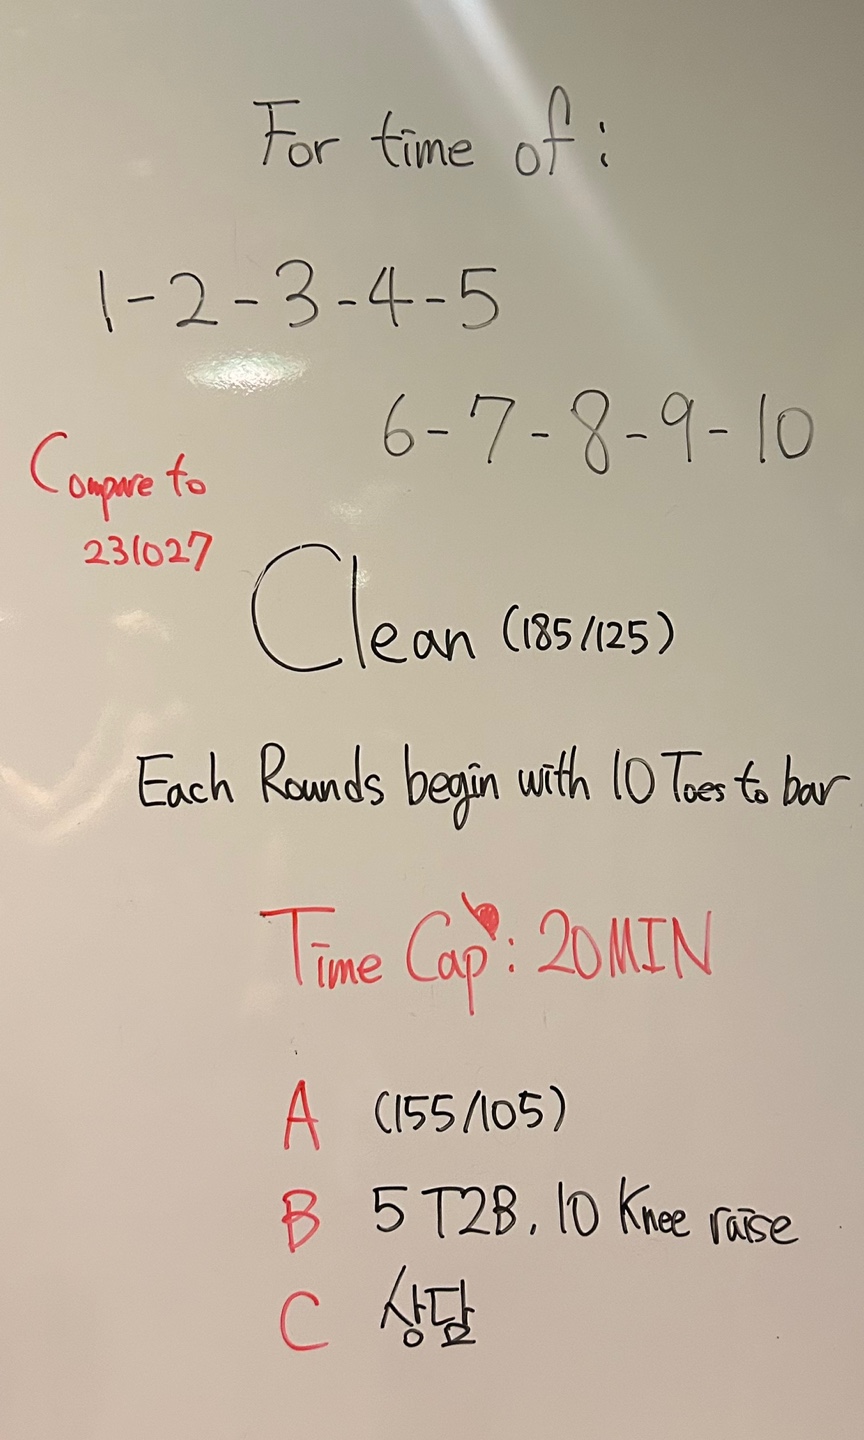 For time of :
1-2-3-4-5
6-7-8-9-10
Compare to
231027
Clean (185/125)
Each Rounds begin with 10 Toes to bar
Time Cap : 20MIN
A (155/105)
B 5 T2B, 10 Knee raise
C 상담